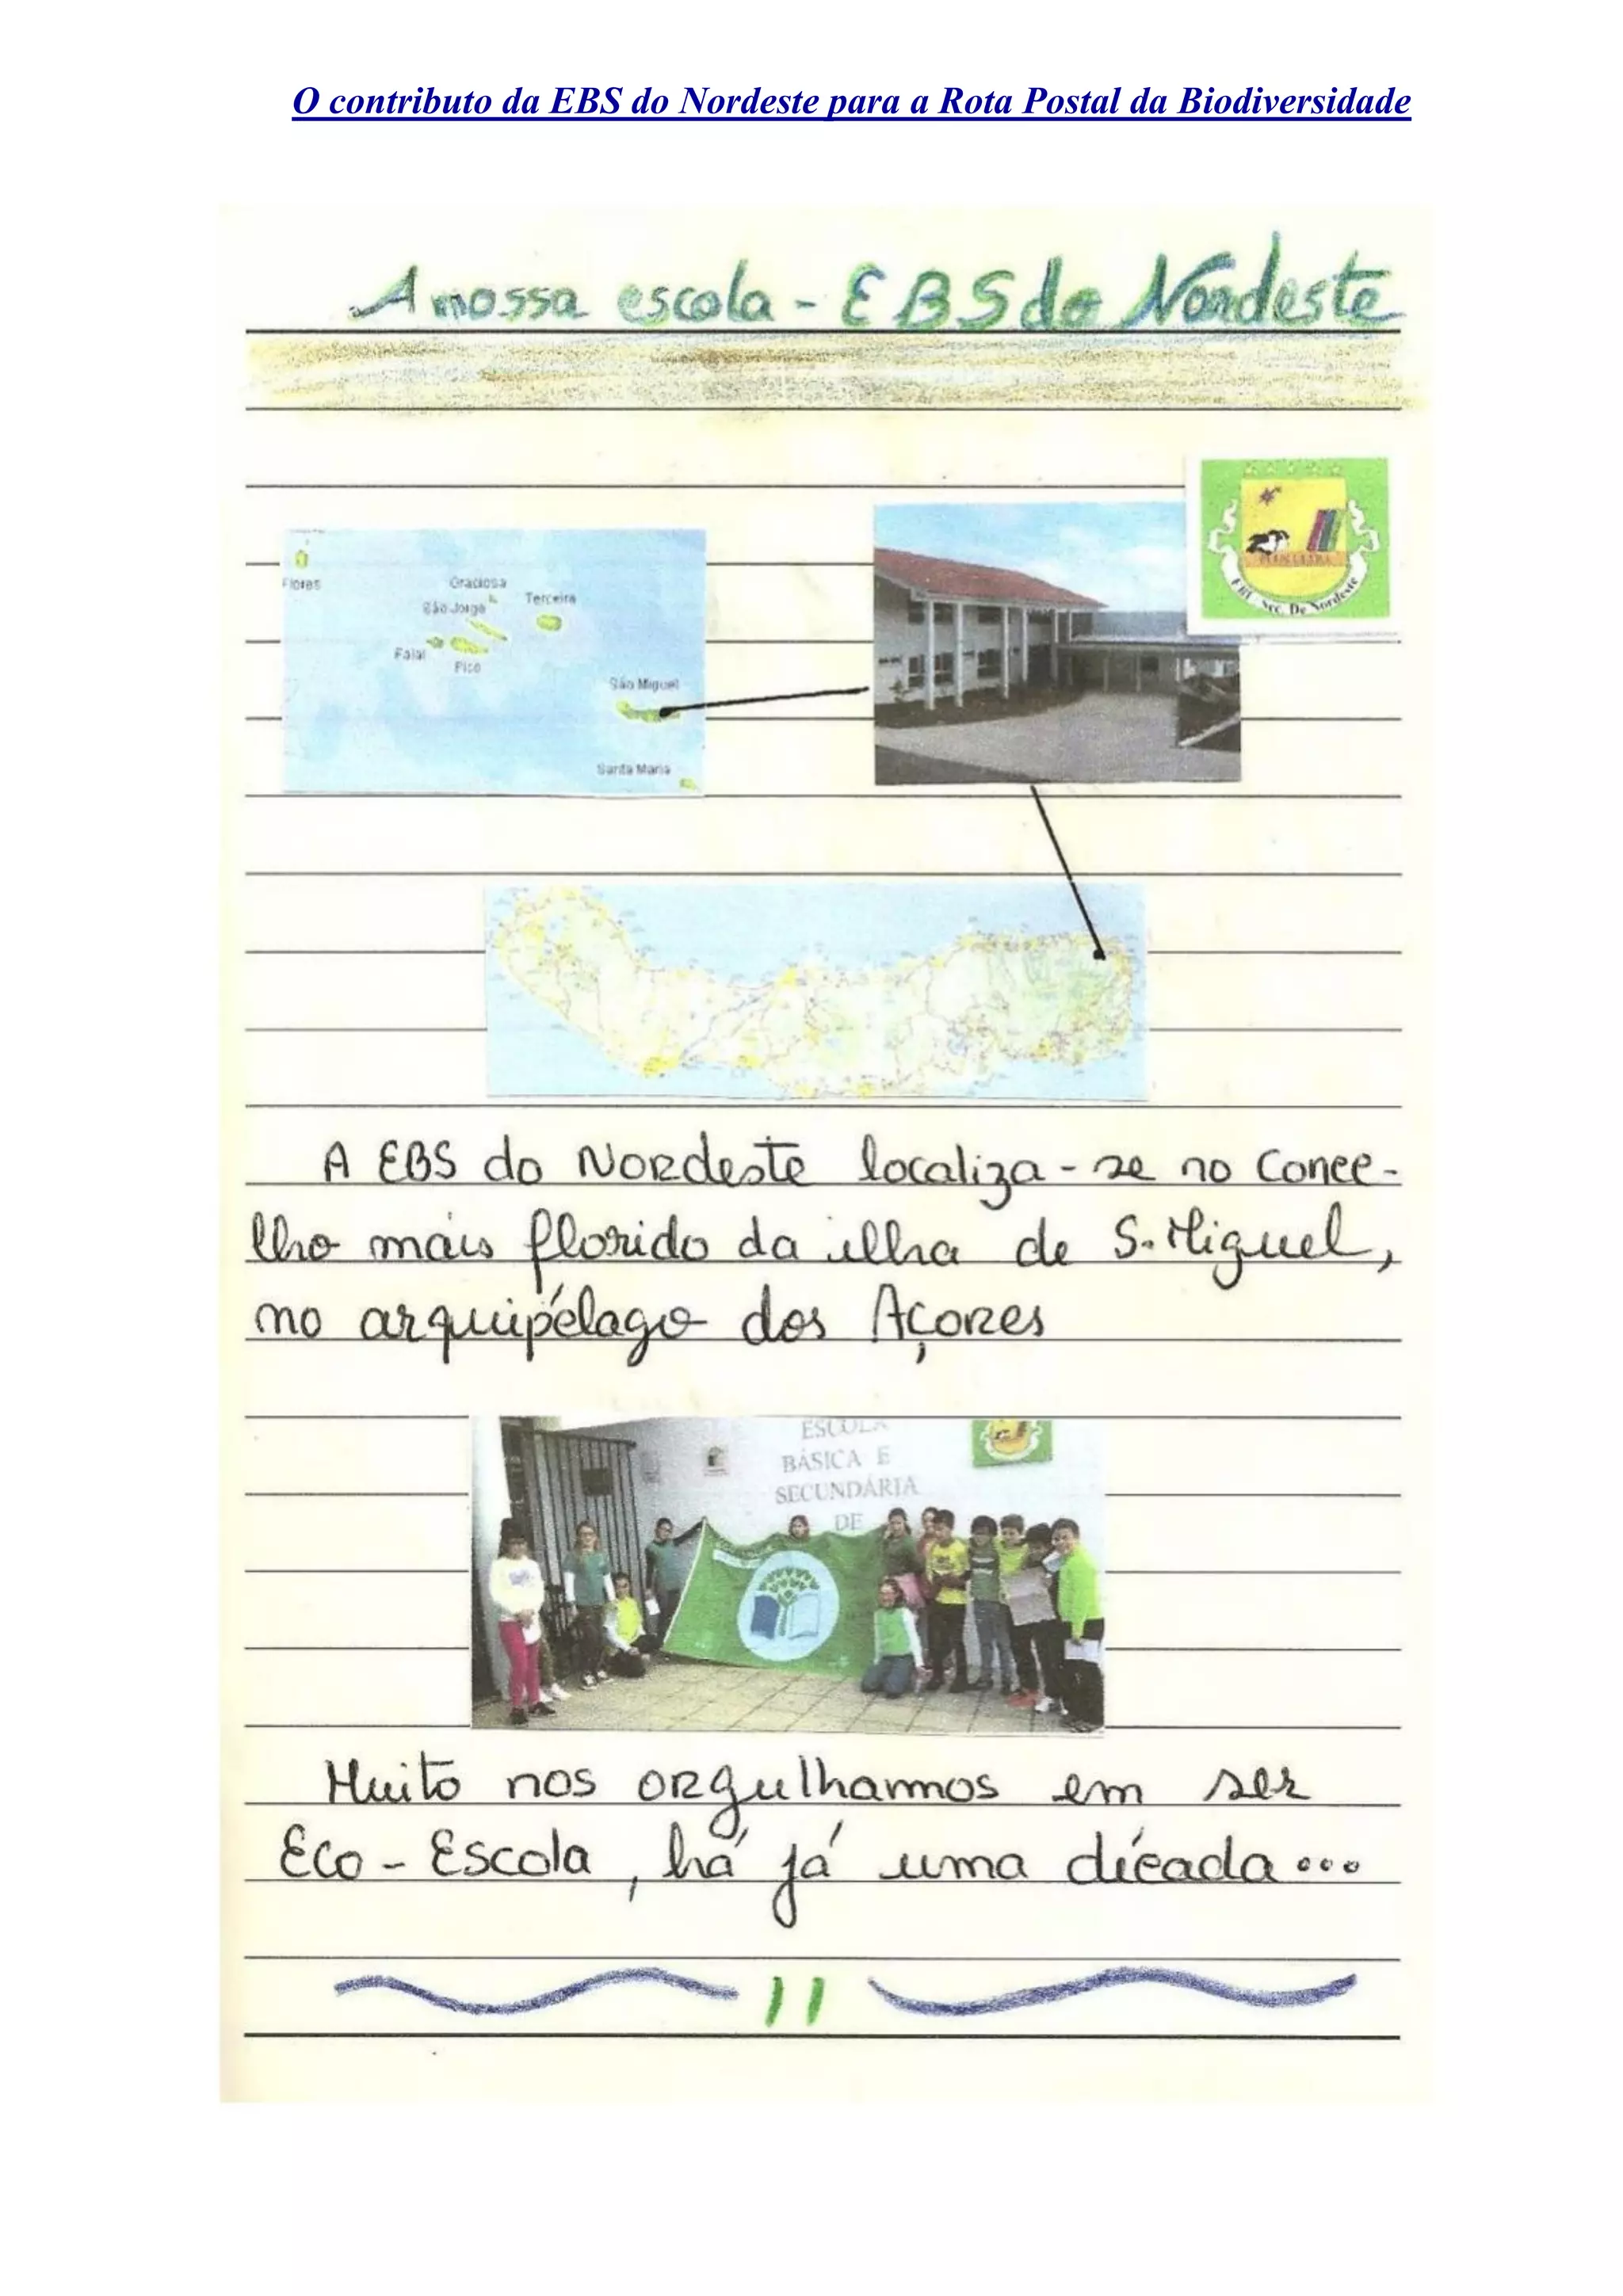 O contributo da EBS do Nordeste para a Rota Postal da Biodiversidade
A nossa escola - EBS do Nordeste
Flores
Graciosa
São Jorge
Terceira
Faial
Pico
São Miguel
Santa Maria
EBI / Sec. De Nordeste
A EBS do Nordeste localiza-se no Conce-
lho mais florido da ilha de S. Miguel,
no arquipélago dos Açores
ESCOLA
BÁSICA E
SECUNDÁRIA
DE
Muito nos orgulhamos em ser
Eco-Escola, há já uma década...
11